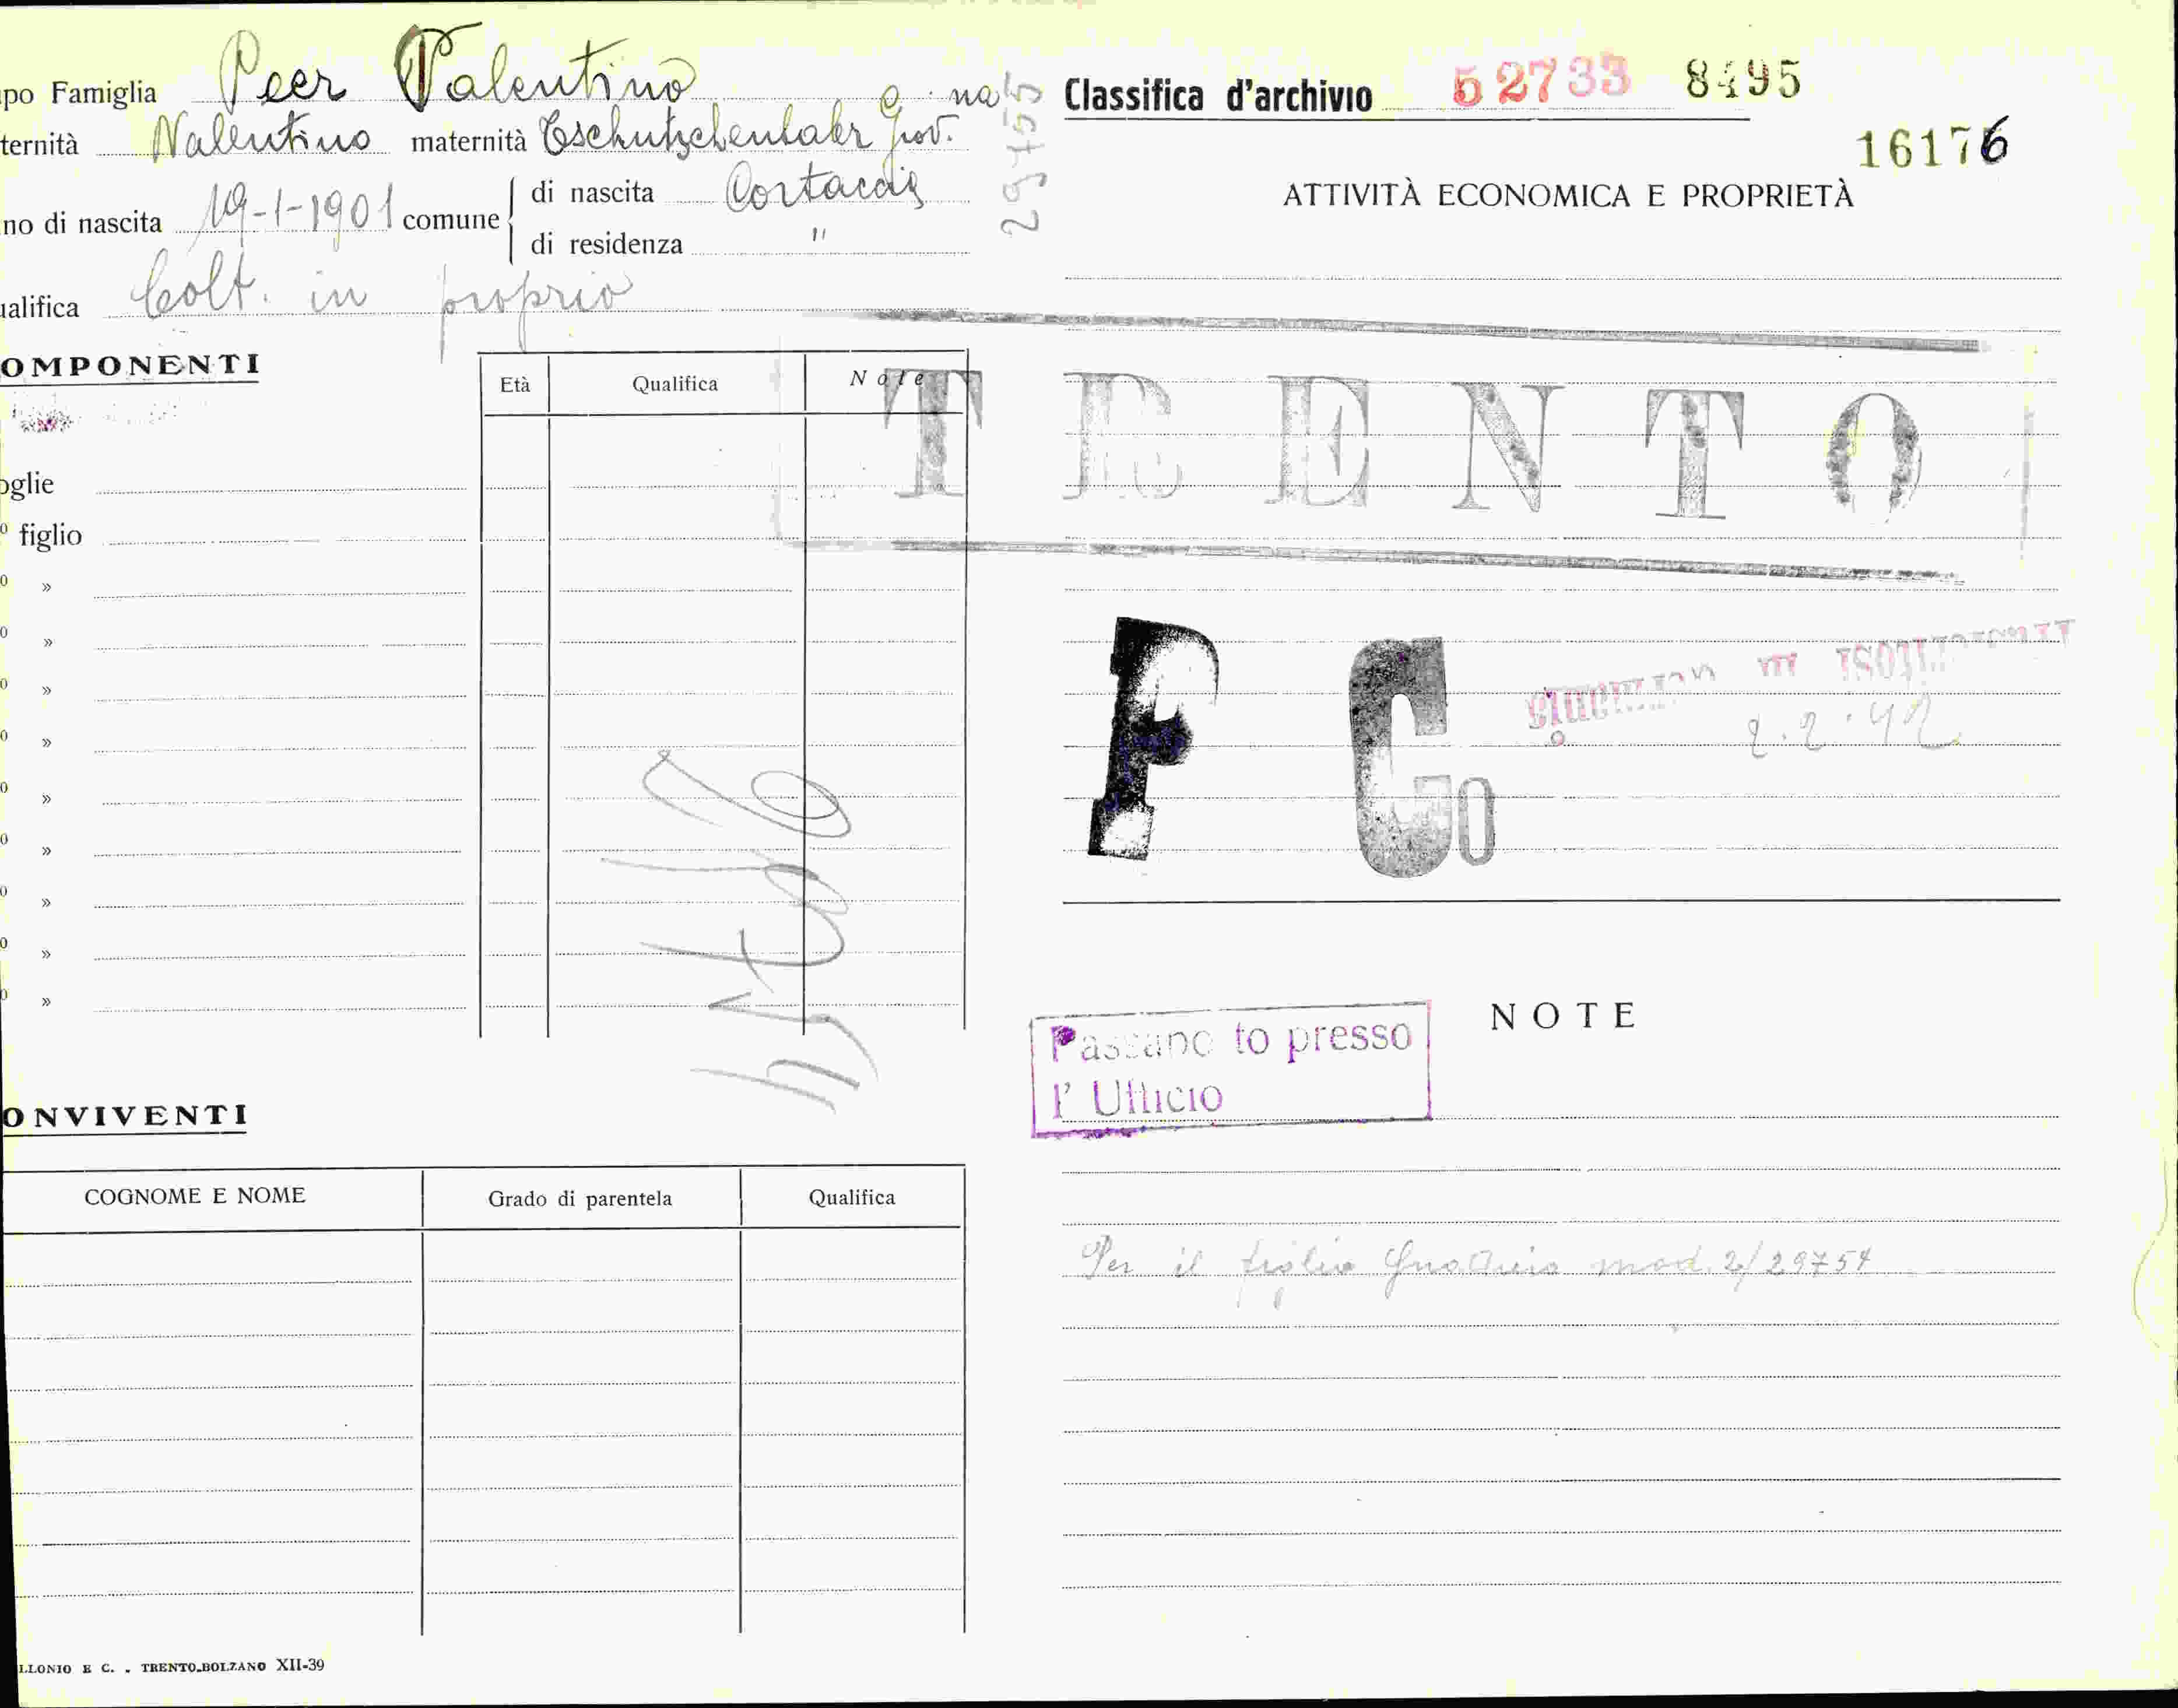 po Famiglia Peer Valentino
ternità Valentino maternità Tschutschentaler Giov.
no di nascita 19-1-1901 comune di nascita Cortaccia
di residenza "
alifica Colt. in proprio
OMPONENTI
Età Qualifica Note
oglie
o figlio
o »
o »
o »
o »
o »
o »
o »
o »
o »
ONVIVENTI
COGNOME E NOME Grado di parentela Qualifica
LLONIO E C. . TRENTO-BOLZANO XII-39
29755
Classifica d'archivio 52733 8495
16176
ATTIVITÀ ECONOMICA E PROPRIETÀ
TRENTO
P Co
2.2.42
NOTE
to presso
l' Ufficio
Per il figlio mod. 2/29754